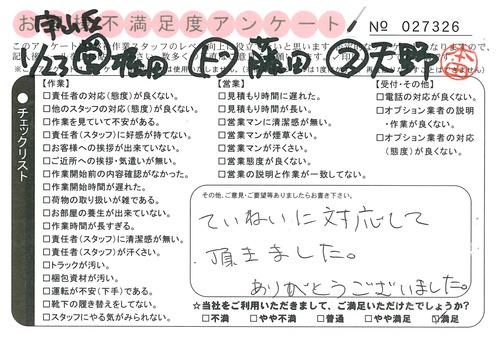 お客様不満足度アンケート
№ 027326
1/23
【作業】
□責任者の対応(態度)が良くない。
□他のスタッフの対応(態度)が良くない。
□作業を見ていて不安がある。
□責任者(スタッフ)に好感が持てない。
□お客様への挨拶が出来ていない。
□ご近所への挨拶・気遣いが無い。
□作業開始前の内容確認がなかった。
□作業開始時間が遅れた。
□荷物の取り扱いが雑である。
□お部屋の養生が出来ていない。
□作業時間が長すぎる。
□責任者(スタッフ)に清潔感が無い。
□責任者(スタッフ)が汗くさい。
□トラックが汚い。
□梱包資材が汚い。
□運転が不安(下手)である。
□靴下の履き替えをしてない。
□スタッフにやる気がみられない。
【営業】
□見積もり時間に遅れた。
□見積もり時間が長い。
□営業マンに清潔感が無い。
□営業マンが煙草くさい。
□営業マンが汗くさい。
□営業態度が良くない。
□営業の説明と作業が一致してない。
【受付・その他】
□電話の対応が良くない。
□オプション業者の説明
・作業が良くない。
□オプション業者の対応
(態度)が良くない。
チェックリスト
その他、ご意見・ご要望等ありましたらお書き下さい。
ていねいに対応して
頂きました。
ありがとうございました。
☆当社をご利用いただきまして、ご満足いただけてしょうか?
□不満 □やや不満 □普通 □やや満足 □満足